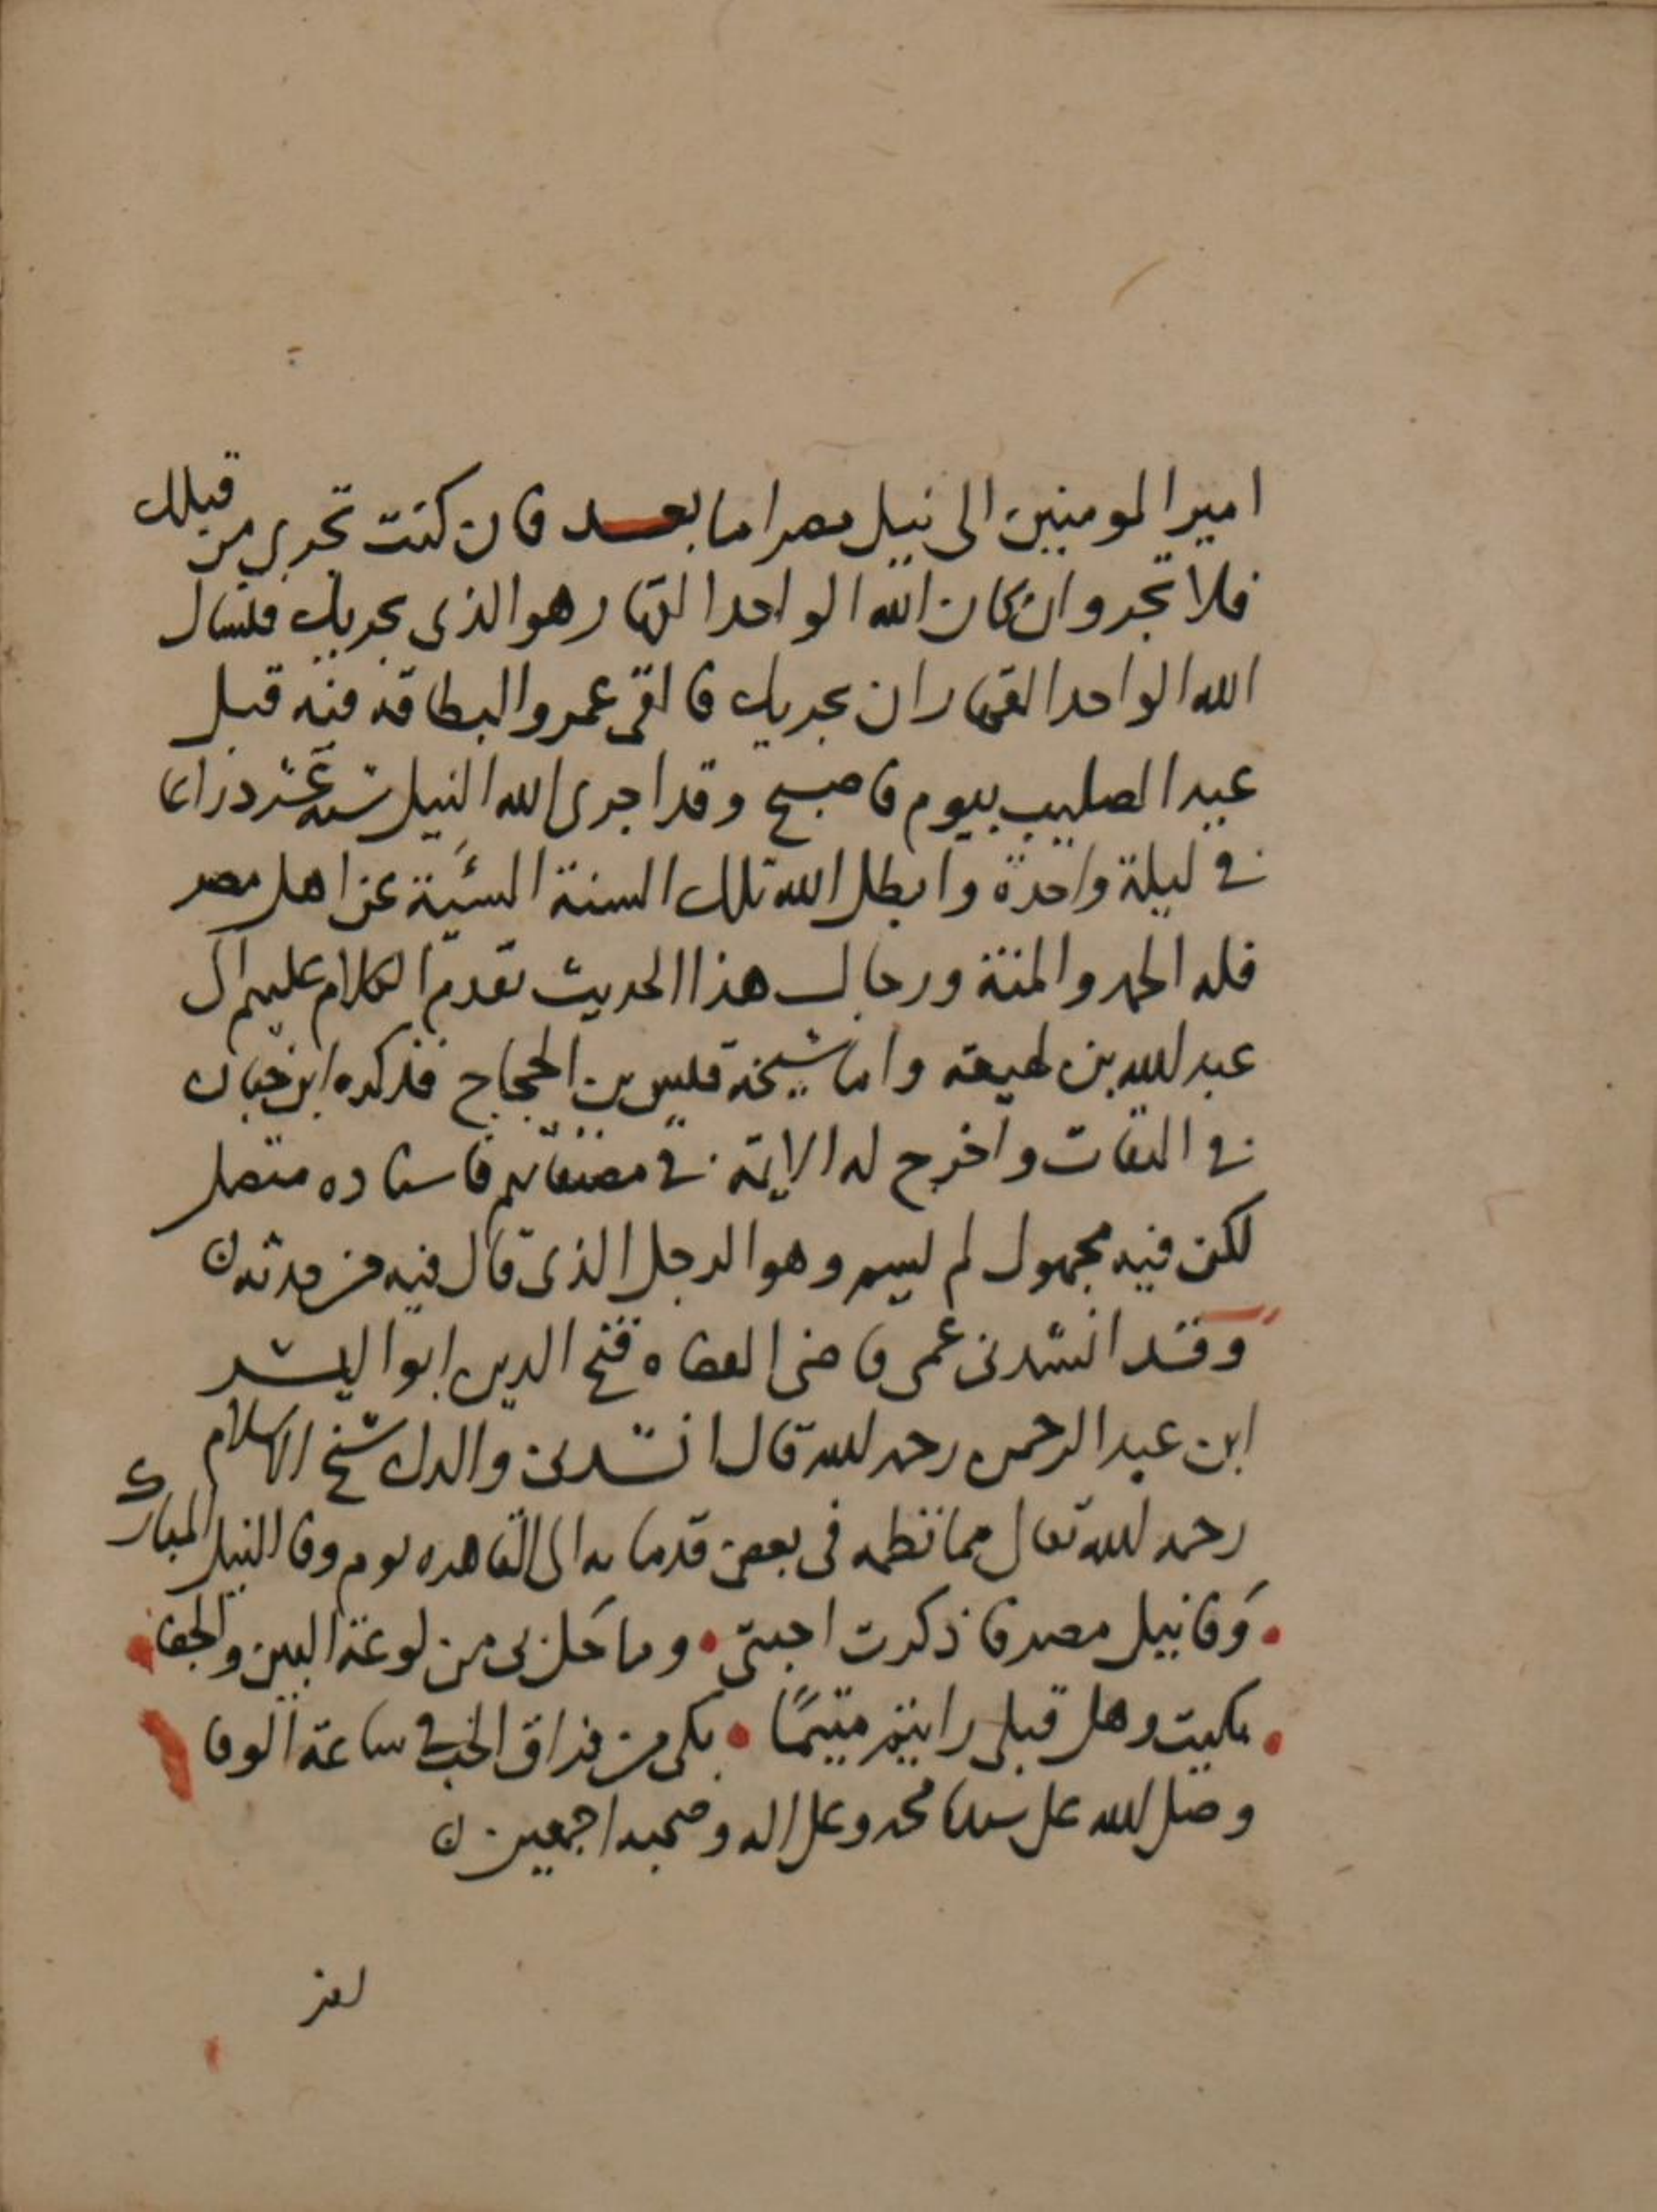 امير المومنين الى نيل مصر اما بعد فان كنت تجرى من قبلك
فلا تجر وان كان الله الواحد القهار هو الذى يجريك فنسال
الله الواحد القهار ان يجريك فالقى عمرو البطاقه فيه قبل
عيد الصليب بيوم فاصبح وقد اجرى الله النيل ستة عشر ذراعا
فى ليلة واحدة وابطل الله تلك السنة السئية عن اهل مصر
فله الحمد والمنة ورجال هذا الحديث تقدم الكلام عليهم الى
عبد الله بن لهيعه واما شيخه قيس بن الحجاج فذكره ابن حبان
فى الثقات واخرج له الايمة فى مصنفاتهم فاسناده متصل
لكن فيه مجهول لم يسم وهو الرجل الذى قال فيه من حدثه ن
وقد انشدنى عمى قاضى القضاه فتح الدين ابو اليسر
ابن عبد الرحمن رحمه الله قال انشدنى والدك شيخ الاسلام
رحمه الله تعالى مما نظمه فى بعض قدماته الى القاهره يوم وفا النيل المبارك
وفا نيل مصر فاذكرت احبتى • وما حل بى من لوعة البين والجفا
بكيت وهل قبلى رايتم متيمًا • بكى من فراق الحب فى ساعة الوفا
وصلى الله على سيدنا محمد وعلى اله وصحبه اجمعين ن